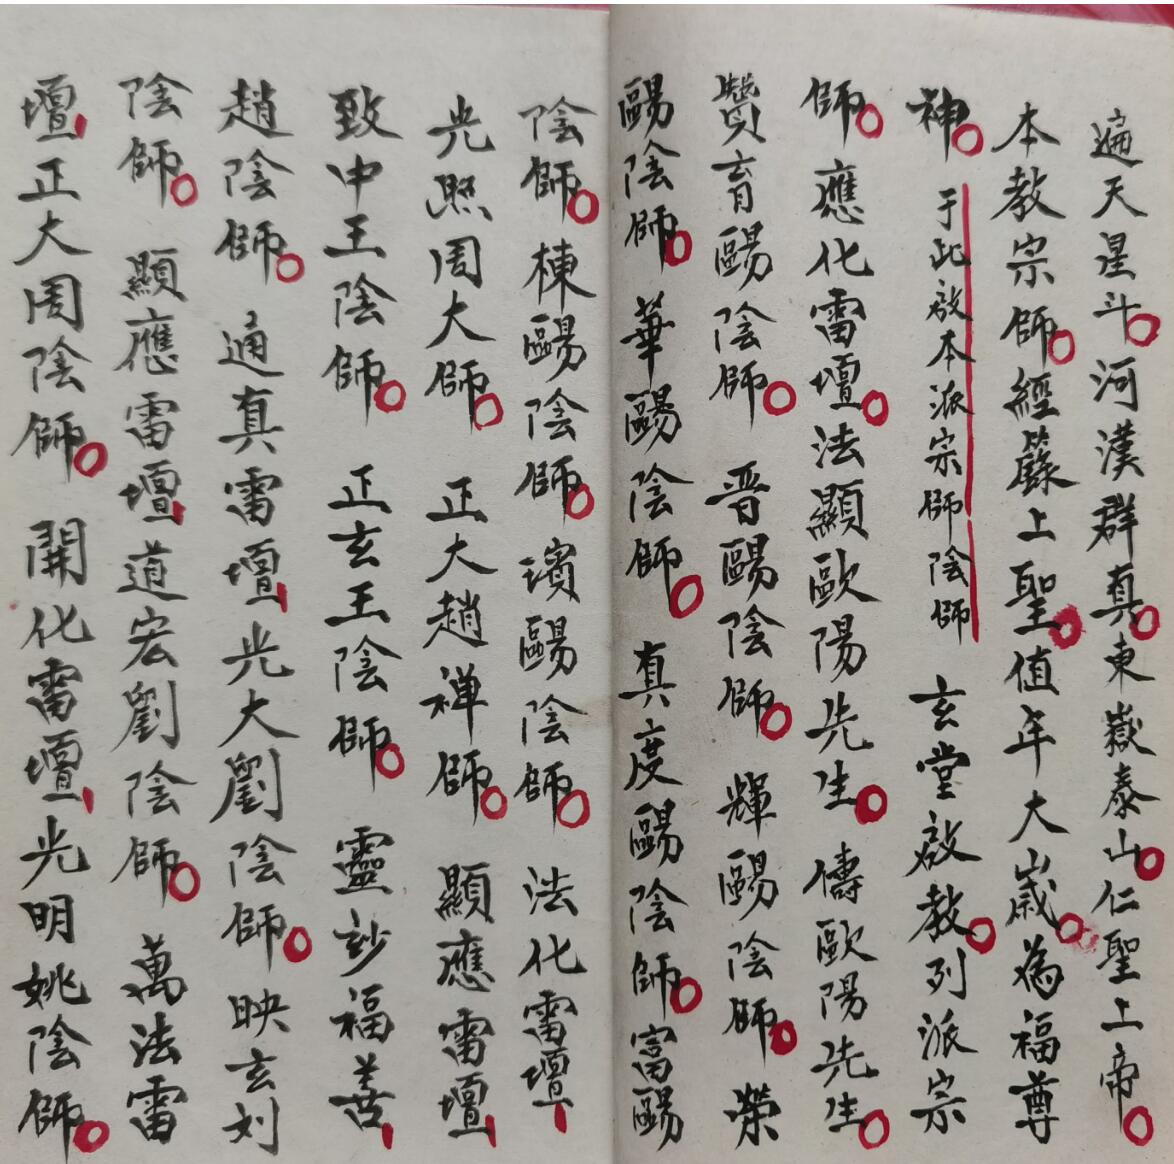 遍天星斗河漢群真東嶽泰山仁聖上帝
本教宗師經籙上聖值年大歲為福尊
神于此啟本派宗師陰師玄堂啟教列派宗
師應化雷壇法顯歐陽先生儔歐陽先生
贊育䴘陰師晋䴘陰師輝䴘陰師榮
䴘陰師華䴘陰師真度䴘陰師富䴘
陰師棟䴘陰師璸䴘陰師法化雷壇
光照周大師正大趙禅師顯應雷壇
致中王陰師正玄王陰師靈妙福善
趙陰師通真雷壇光大劉陰師映玄刘
陰師顯應雷壇道宏劉陰師萬法雷
壇正大周陰師開化雷壇光明姚陰師